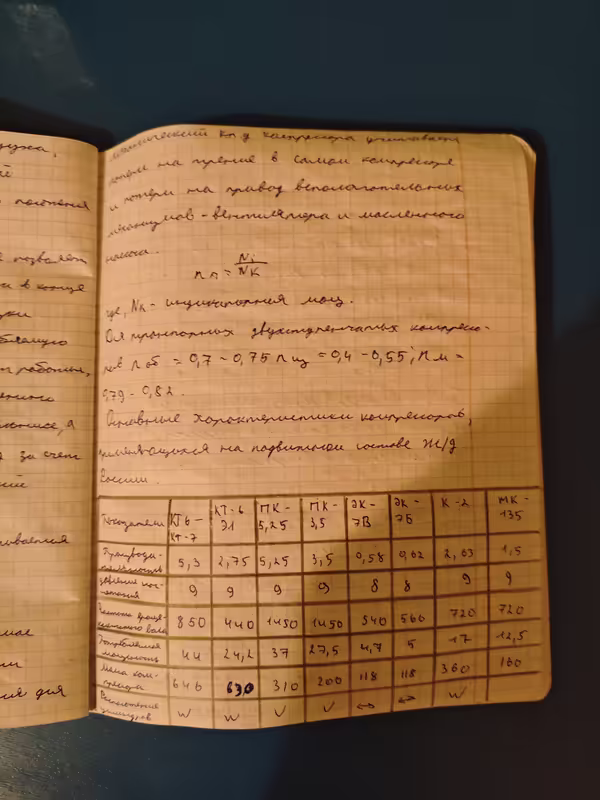 ужа,
ей
постения
позволяет
и в конце
ции
бляющую
работы,
за счет
ний
ивается
мае
ии
ия для
механический кпд компрессора учитывает
потери на трение в самом компрессоре
и потери на привод вспомогательных
механизмов - вентилятора и масленного
насоса.
n м = Ni / NK
где, NK - индикаторная мощ.
Для транспортных двухступенчатых компрессо-
ров n об = 0,7 - 0,75 n из = 0,4 - 0,55; n м =
0,79 - 0,82.
Основные характеристики компрессоров,
применяющихся на подвижном составе Ж/д
России.
Показатели КТ6 - КТ-7 КТ-6 Эл ПК - 5,25 ПК - 3,5 ЭК - 7В ЭК - 7Б К - 2 МК - 135
Производи-тельность 5,3 2,75 5,25 3,5 0,58 0,62 2,63 1,5
давление наг-нетания 9 9 9 9 8 8 9 9
Частота вращ. коленчатого вала 850 440 1450 1450 540 560 720 720
Потребляемая мощность 44 24,2 37 27,5 4,7 5 17 12,5
Масса ком-прессора 646 630 310 200 118 118 360 160
Расположение цилиндров W W V V ↔ ↔ W